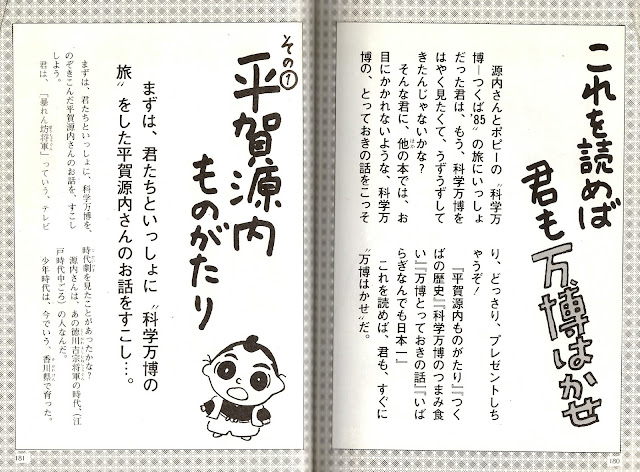 これを読めば
君も万博はかせ
源内さんとポピーの〝科学万
博―つくば'85〟の旅にいっしょ
だった君は、もう、科学万博を
はやく見たくて、うずうずして
きたんじゃないかな?
そんな君に、他の本では、お
目にかかれないような、科学万
博の、とっておきの話をこっそ
り、どっさり、プレゼントしち
ゃうぞ!
『平賀源内ものがたり』『つく
ばの歴史』『科学万博のつまみ食
い』『万博とっておきの話』『いば
らぎなんでも日本一』
これを読めば、君も、すぐに
〝万博はかせ〟だ。
180
その①
平賀源内
ものがたり
まずは、君たちといっしょに〝科学万博の
旅〟をした平賀源内さんのお話をすこし…。
まずは、君たちといっしょに、科学万博を、
のぞきこんだ平賀源内さんのお話を、すこし
しよう。
君は、「暴れん坊将軍」っていう、テレビ
時代劇を見たことがあったかな?
源内さんは、あの徳川吉宗将軍の時代、(江
戸時代中ごろ)の人なんだ。
少年時代は、今でいう、香川県で育った。
181